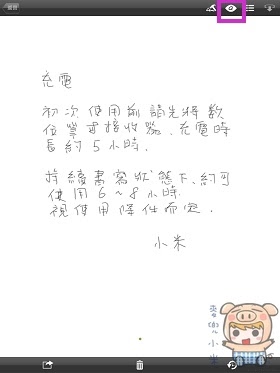 充電
初次使用前請先將數
位筆或接收器.充電時
長約5小時.
持續書寫狀態下.約可
使用6~8小時.
視使用條件而定.
小米
麥兜小米